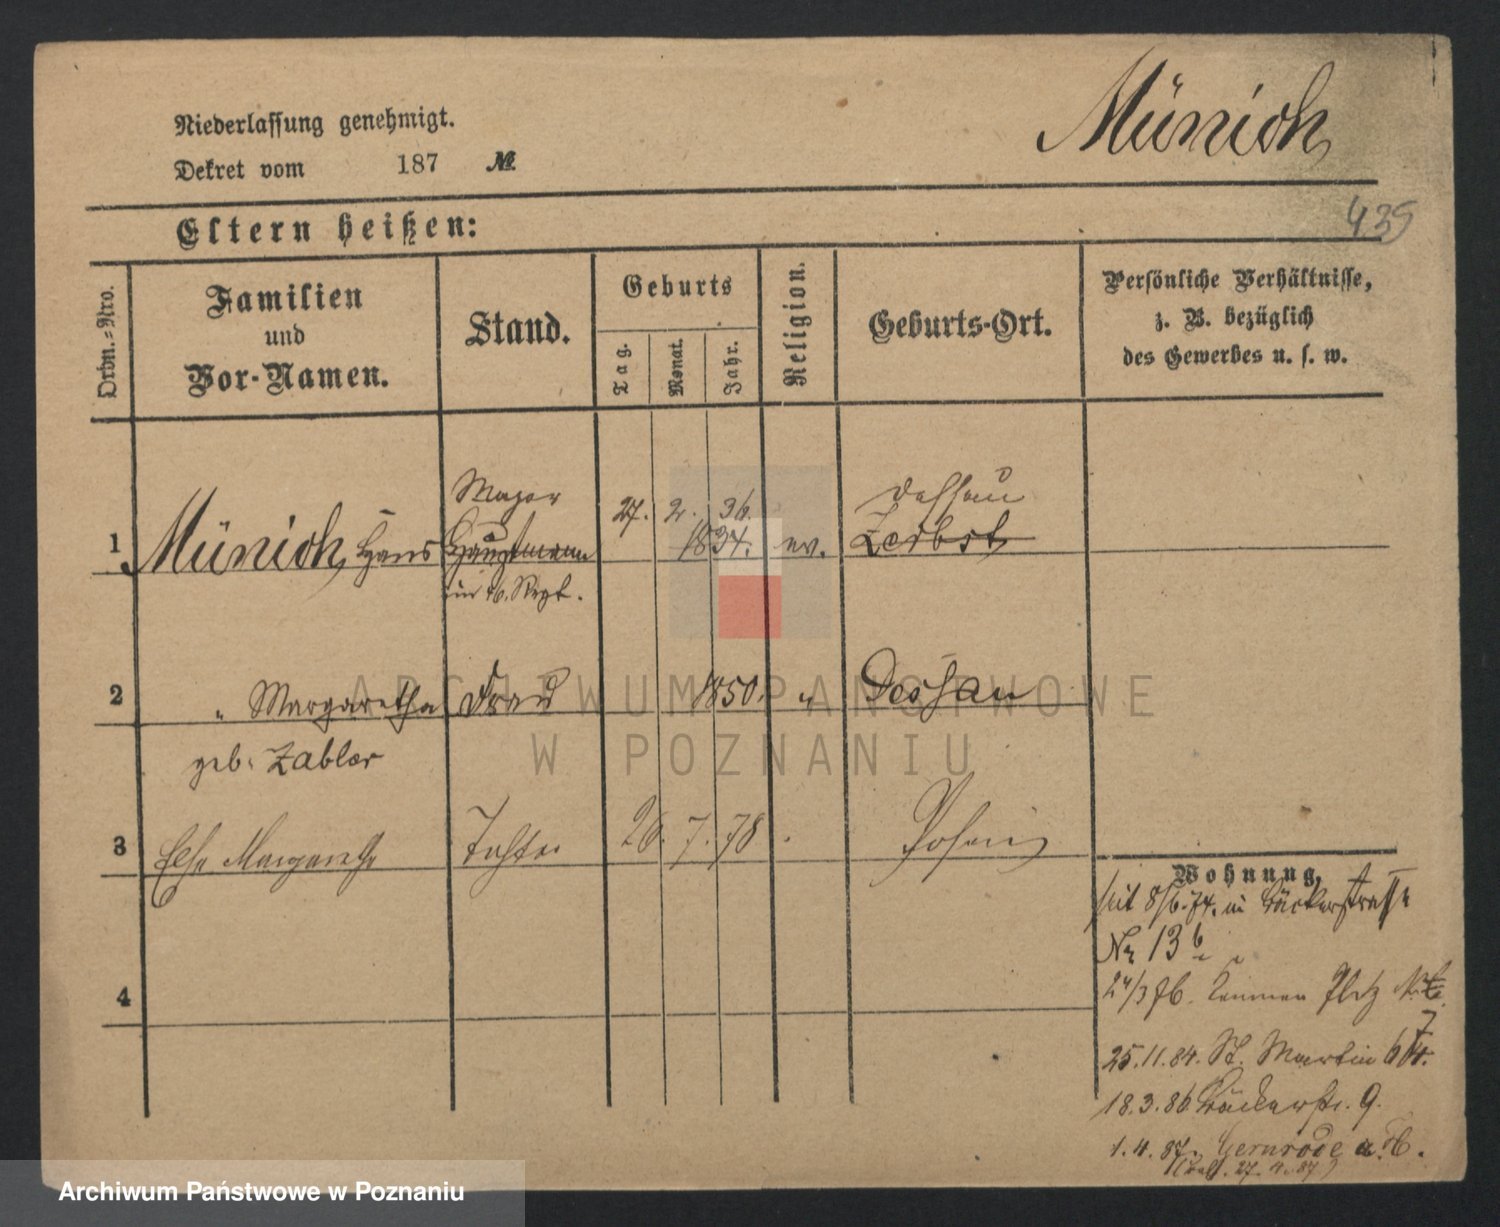 Münich
Niederlassung genehmigt.
Dekret vom 187 №
435
Eltern heißen:
Ordn.-Nro.
Familien
und
Vor-Namen.
Stand.
Geburts
Tag.
Monat.
Jahr.
Religion.
Geburts-Ort.
Persönliche Verhältnisse,
z. B. bezüglich
des Gewerbes u. s. w.
Major 27. 2. 36. Dessau
1 Münich, Hans Hauptmann 1834. ev. Zerbst
im 46. Regt.
2 " Margaretha Frau 1850. " Dessau
geb. Zabler
3 Else Margarethe Tochter 26. 7. 78 Posen
4
Wohnung.
seit 8/6. 74. in Bäckerstrasse
Nr 13 b
24/3 76. Kanonen Platz
7
25.11.84. St. Martin
18.3.86 Bäckerstr. 9.
1.4.87. Gernrode a. H.
27. 4. 87
ARCHIWUM PAŃSTWOWE
W POZNANIU
Archiwum Państwowe w Poznaniu